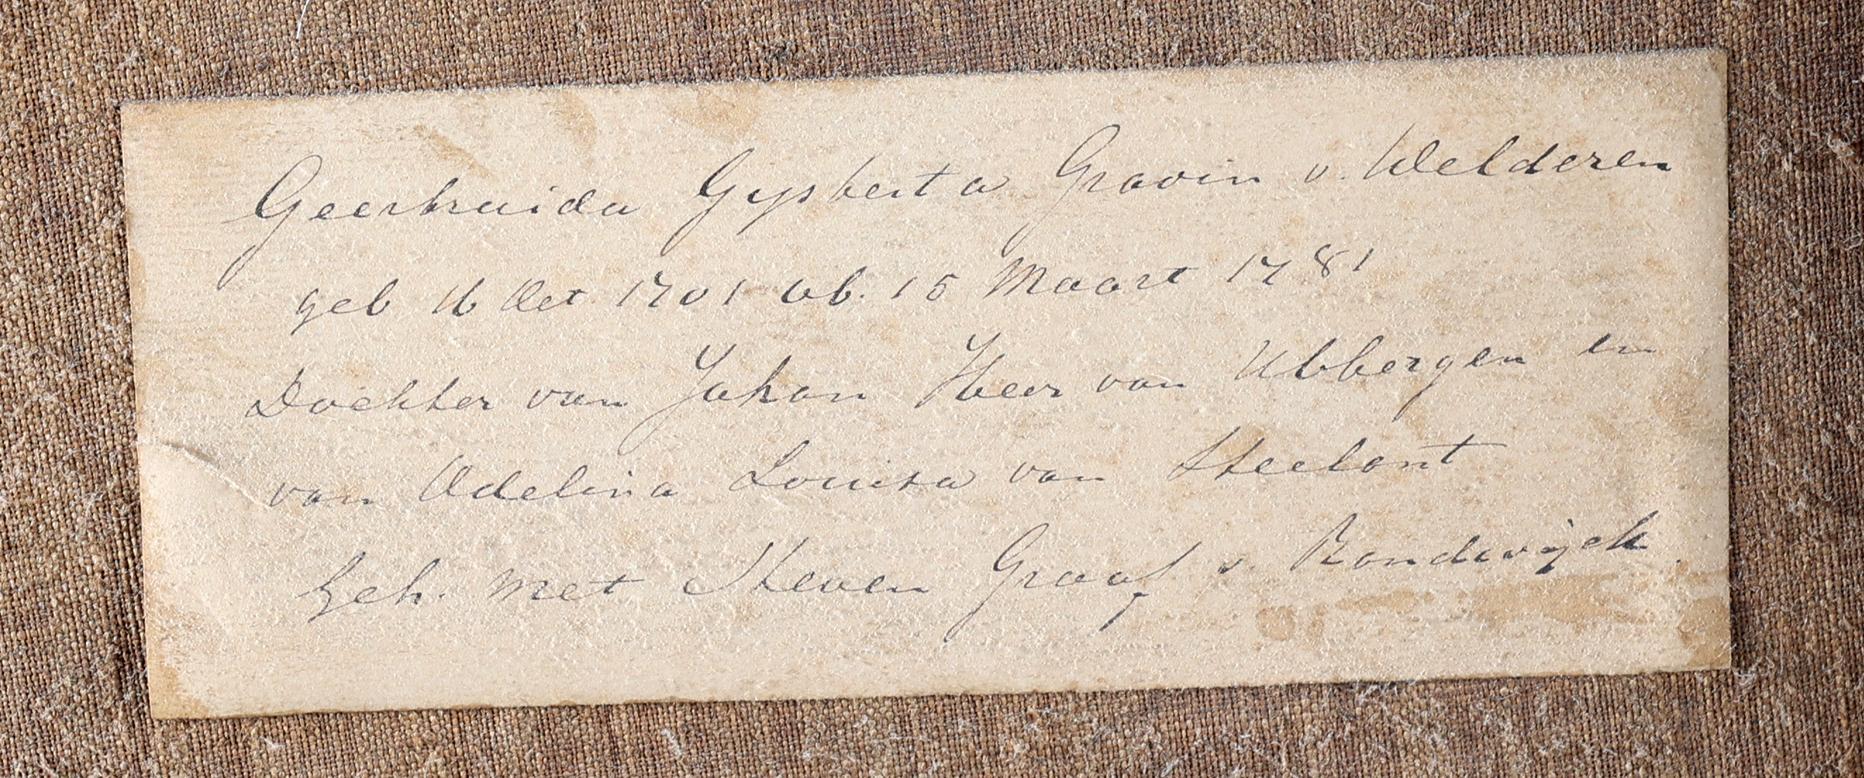 Geertruida Gysberta Gravin v. Welderen
geb 16 Oct 1701 ob. 15 Maart 1781
Dochter van Johan Heer van Ubbergen en
van Adelina Louisa van Steelant
Geh. met Steven Graaf v. Randwijck.